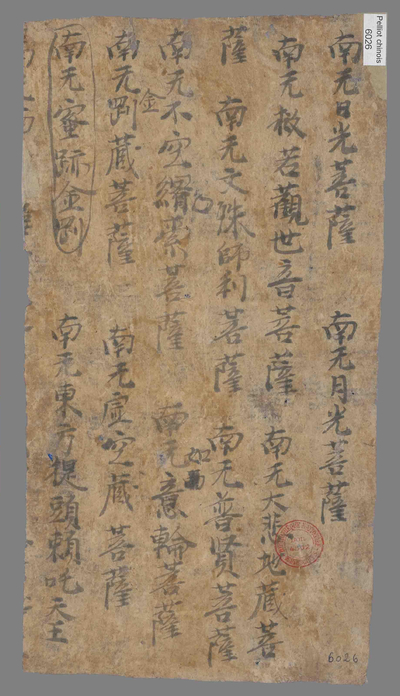 Pelliot chinois
6026
南无日光菩薩 南无月光菩薩
南无救若觀世音菩薩 南无大悲地藏菩
薩 南无文殊師利菩薩 南无普贤菩薩
南无不空羂索菩薩 南无意輪菩薩
如
南无金剛藏菩薩 南无虛空藏菩薩
南无蜜跡金剛 南无東方提頭賴吒天王
6026